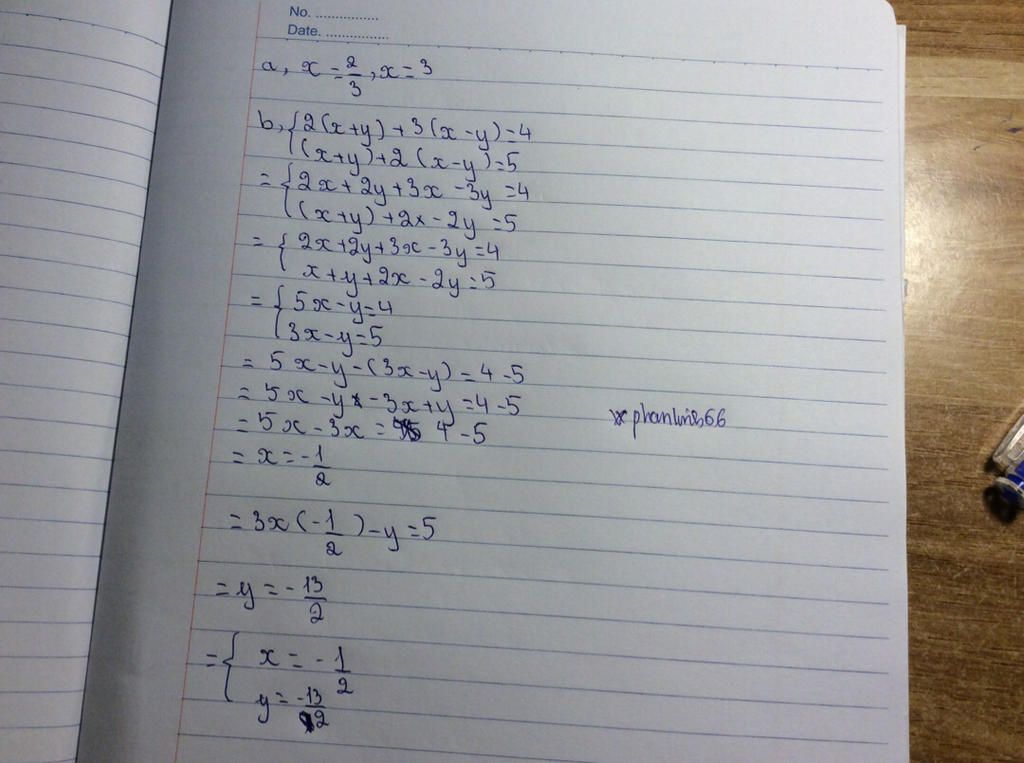 No. ...............
Date. .................
a, x = 2/3, x = 3
b, { 2(x+y) + 3(x-y) = 4
(x+y) + 2(x-y) = 5
= { 2x + 2y + 3x - 3y = 4
(x+y) + 2x - 2y = 5
= { 2x + 2y + 3x - 3y = 4
x + y + 2x - 2y = 5
= { 5x - y = 4
3x - y = 5
= 5x - y - (3x - y) = 4 - 5
= 5x - y - 3x + y = 4 - 5
= 5x - 3x = 4 - 5
= x = -1/2
= 3x(-1/2) - y = 5
= y = -13/2
= { x = -1/2
y = -13/2